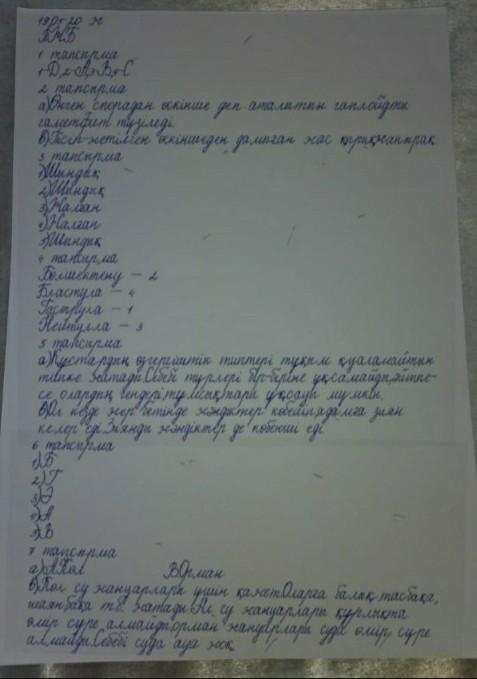 19.05.20 ж
БЖБ
1 тапсырма
1-D 2-А 3-В 4-С
2 тапсырма
а) Өнген спорадан өскінше деп аталатын гаплойдты
гаметфит түзіледі.
в) Жетілген өскіншеден дамыған жас қырыққапырақ
3 тапсырма
1) Шындық
2) Шындық
3) Жалған
4) Жалған
5) Шындық
4 тапсырма
Бөлшектену – 2
Бластула – 4
Гаструла – 1
Нейрулла – 3
5 тапсырма
а) Құстардың өзгергіштік типтері тұқым қуаламайтын
типке жатады. Себебі түрлері бір-біріне ұқсамайды, әйтпе-
се олардың гендері, тұмсықтары ұқсауы мүмкін.
в) Ол кезде жер бетінде жәндіктер көбейіп адамға зиян
келер еді. Зиянды жәндіктер де көбейші еді
6 тапсырма
1) Б
2) Г
3) Ә
4) А
5) В
7 тапсырма
а) А Көл В Орман
в) Көл су жануарлары үшін қажет. Оларға балық, тасбақа,
шаян, бақа т.б. жатады. Ал су жануарлары құрлықта
өмір сүре алмайды, орман жануарлары суда өмір сүре
алмайды. Себебі суда ауа жоқ